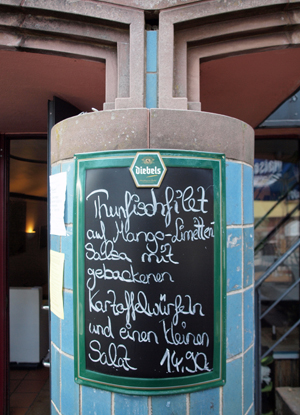 Diebels
Thunfischfilet
auf Mango-Limetten
Salsa mit
gebackenen
Kartoffelwürfeln
und einen kleinen
Salat 14.90€